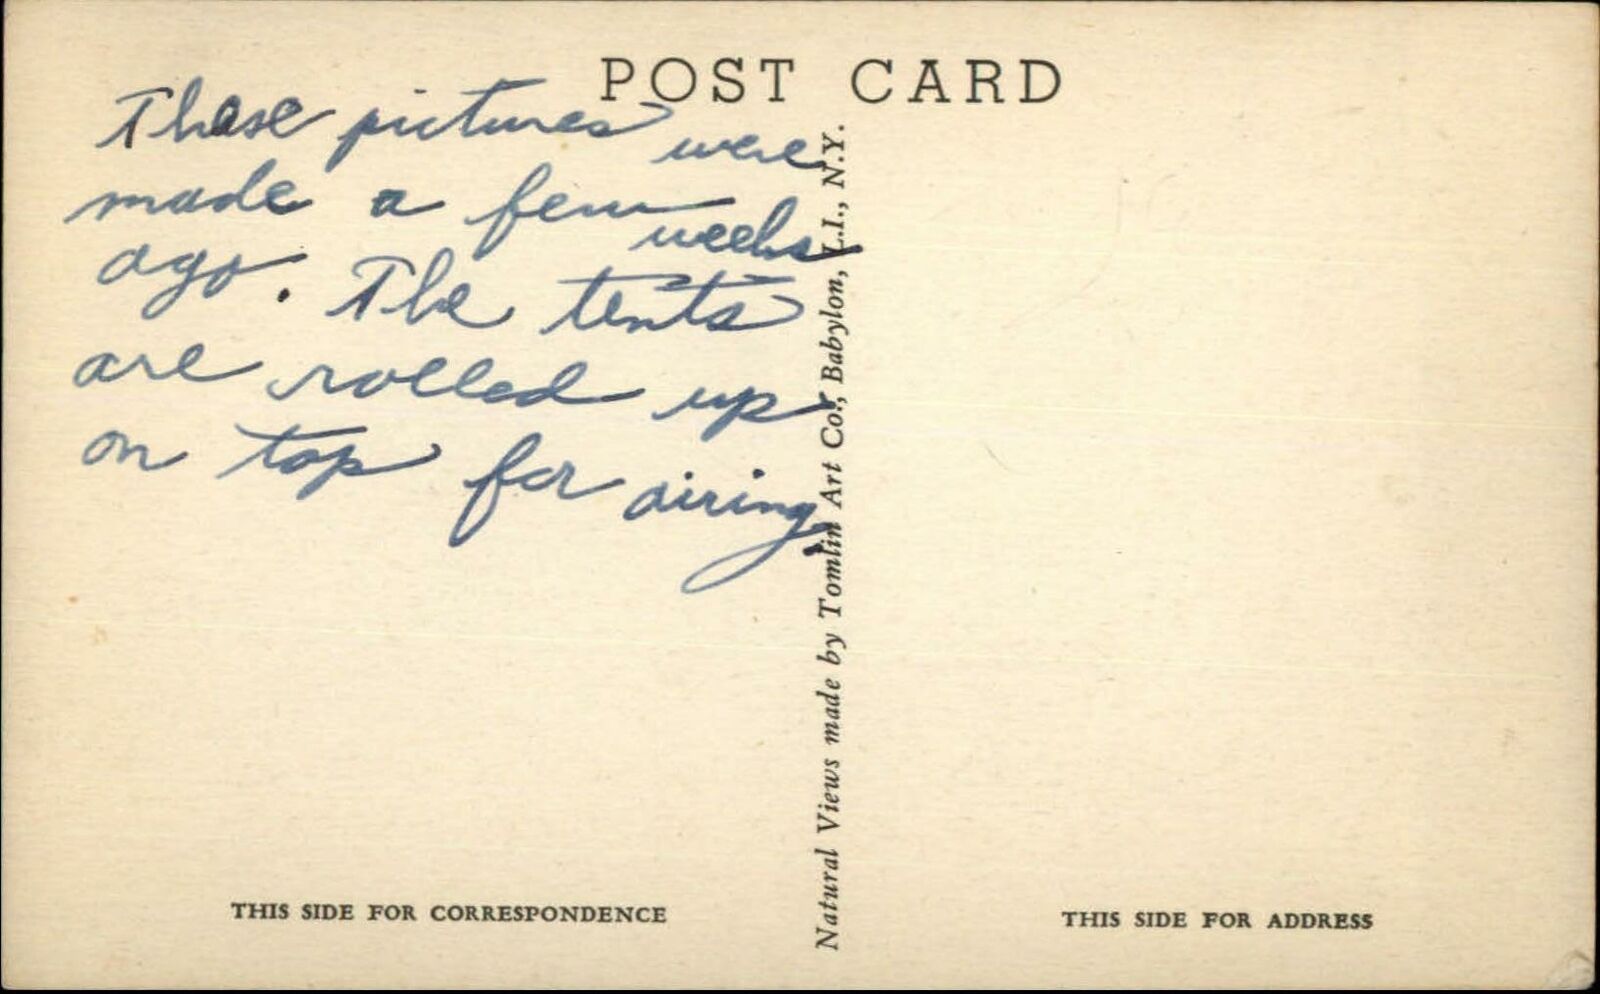 POST CARD
These pictures were
made a few weeks
ago. The tents
are rolled up
on top for airing.
Natural Views made by Tomlin Art Co., Babylon, L.I., N.Y.
THIS SIDE FOR CORRESPONDENCE
THIS SIDE FOR ADDRESS